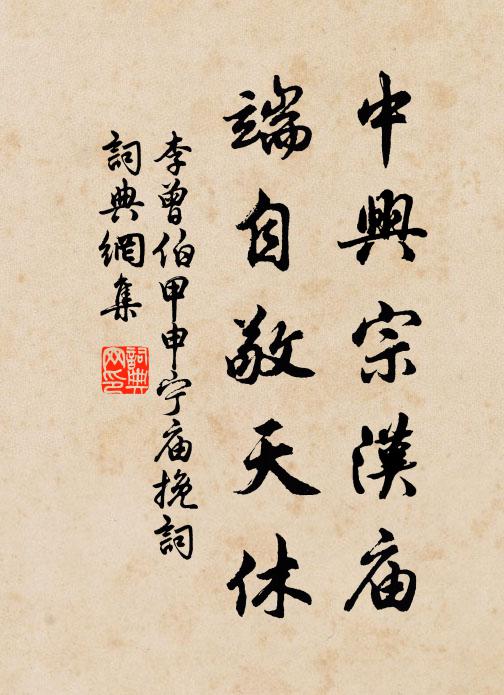 中興宗漢庙
端自敬天休
李曾伯甲申宁庙挽词
词典網集
词典网印